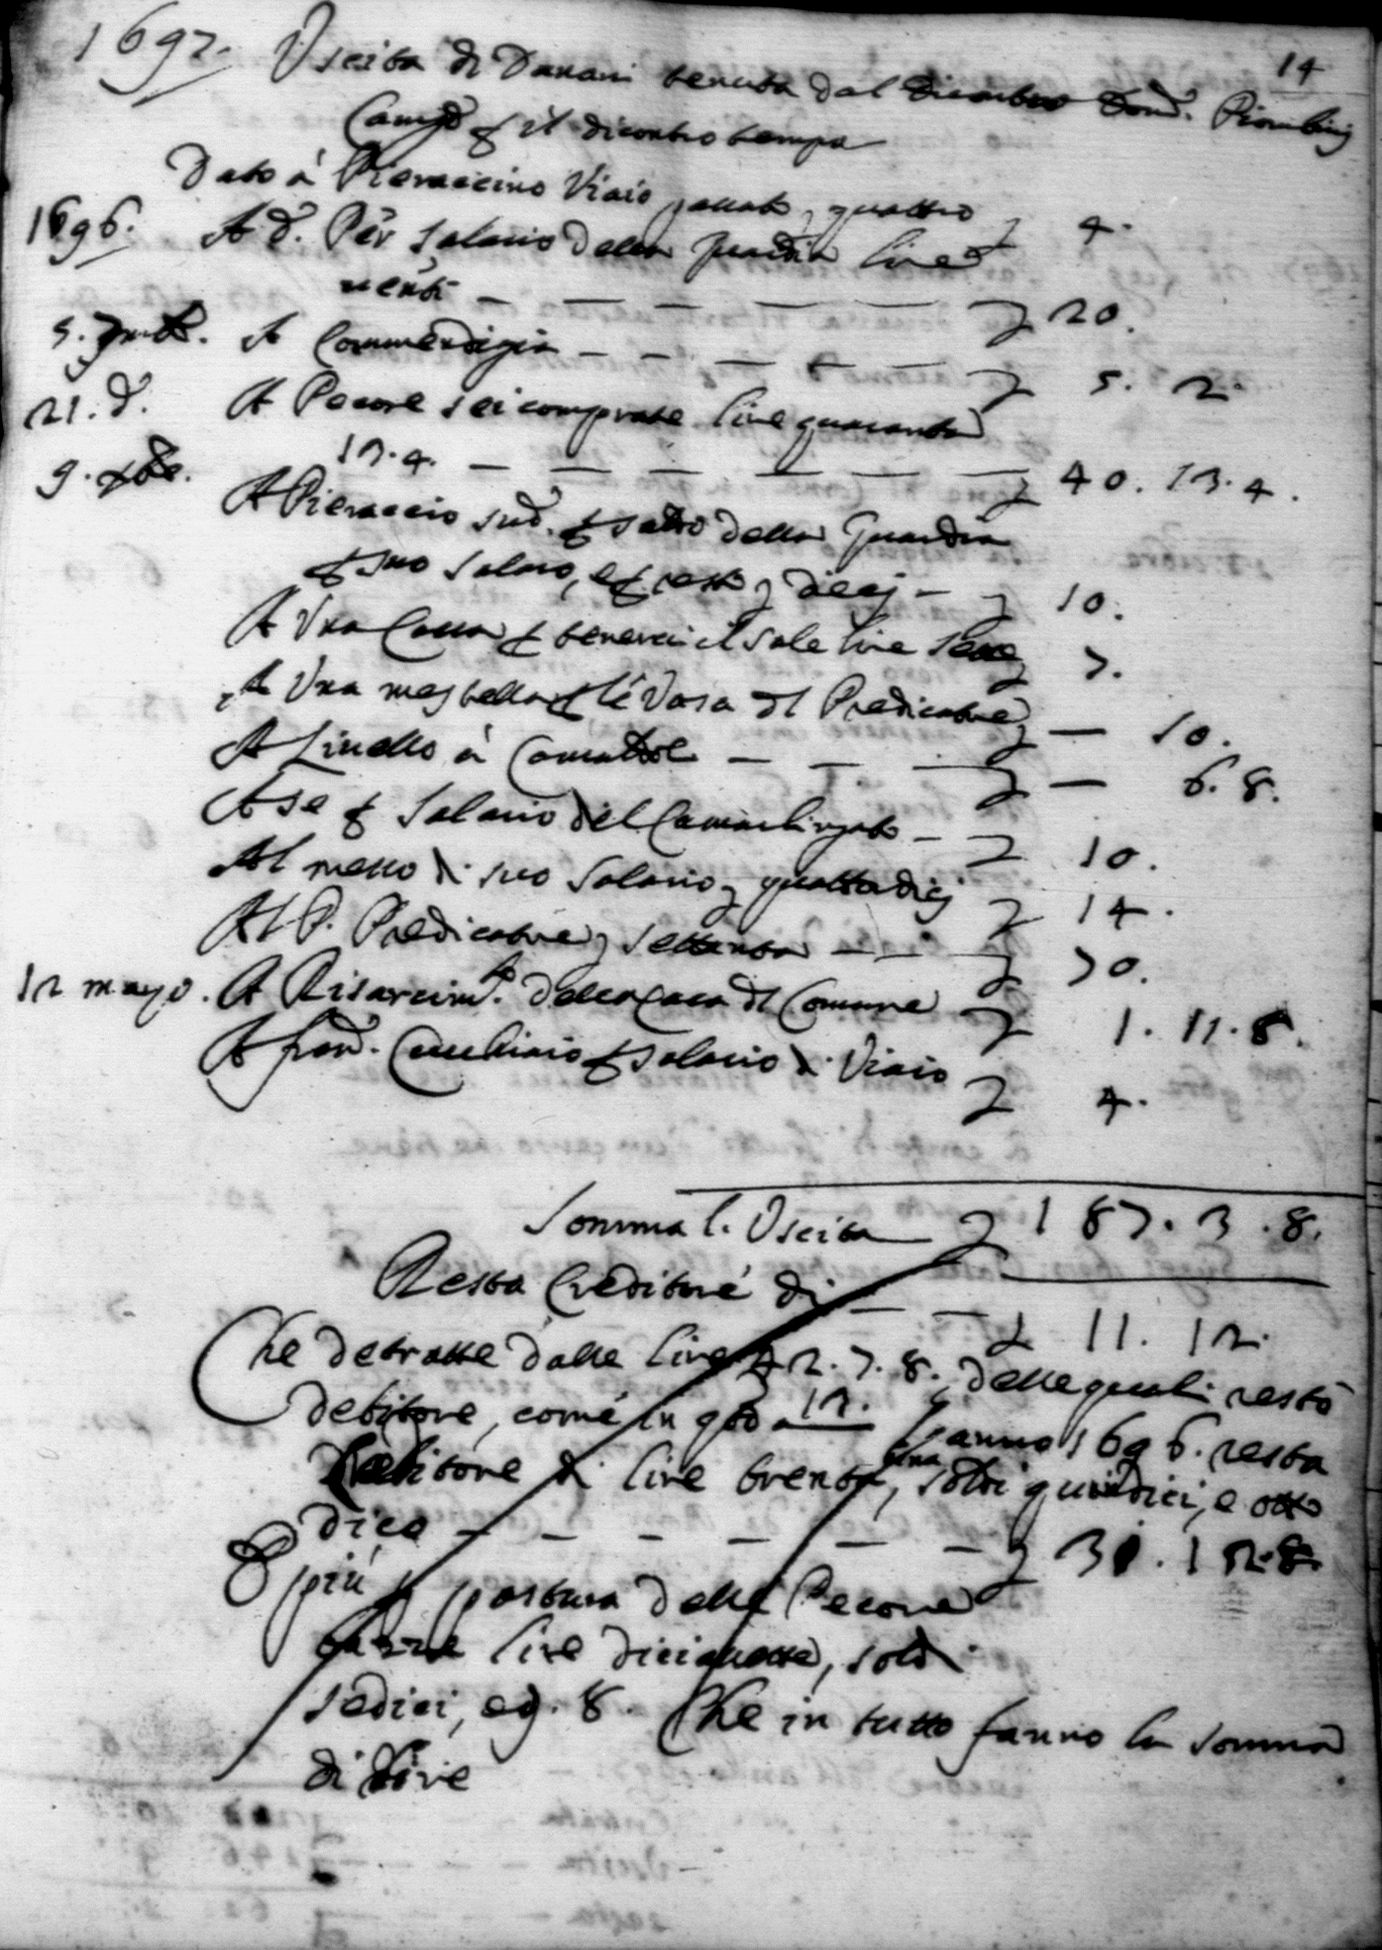 14
1697. Uscita di Danari tenuta dal Dicontro Dom. Piombinj
Camo p il dicontro tempo
Dato à Pieraccino Viaio passato, quattro 4.
1696. A d. Per salario della guardia lire
venti — — — — — 20.
5. A Commendigia — — — — 5. 2.
21. d. A Pecore sei comprate lire quaranta
13.4. — — — — — 40. 13. 4.
9. A Pieraccio sud. p saldo della Guardia
p suo salaro, e p resto dieci — 10.
A Una Cassa p tenervi il sale lire sette 7.
A Una mestella p le Vasa dl Predicatore — 10.
A Livello à — — — — 6. 8.
A se p salario del Camarlingato — 10.
Al messo di suo salario quattordicj 14.
Al P. Predicatore settanta — — 70.
12 mayo. A Risarcim.to della Casa dl Comune 1. 11. 8.
A fran. Cucchiaio p salario di Viaio 4.
Somma l. Uscita 187. 3. 8.
Resta Creditore di — — 11. 12.
Che detratte dalle lire 42. 7. 8. delle quali restò
debitore, come in qto a 12. l'anno 1696. resta
Debitore di lire trenta una, soldi quindici, e otto
dico — — — — — — 31. 15. 8.
E più p pastura delle Pecore
lire diciasette, soldi
sedici, e d. 8. Che in tutto fanno la somma
di lire